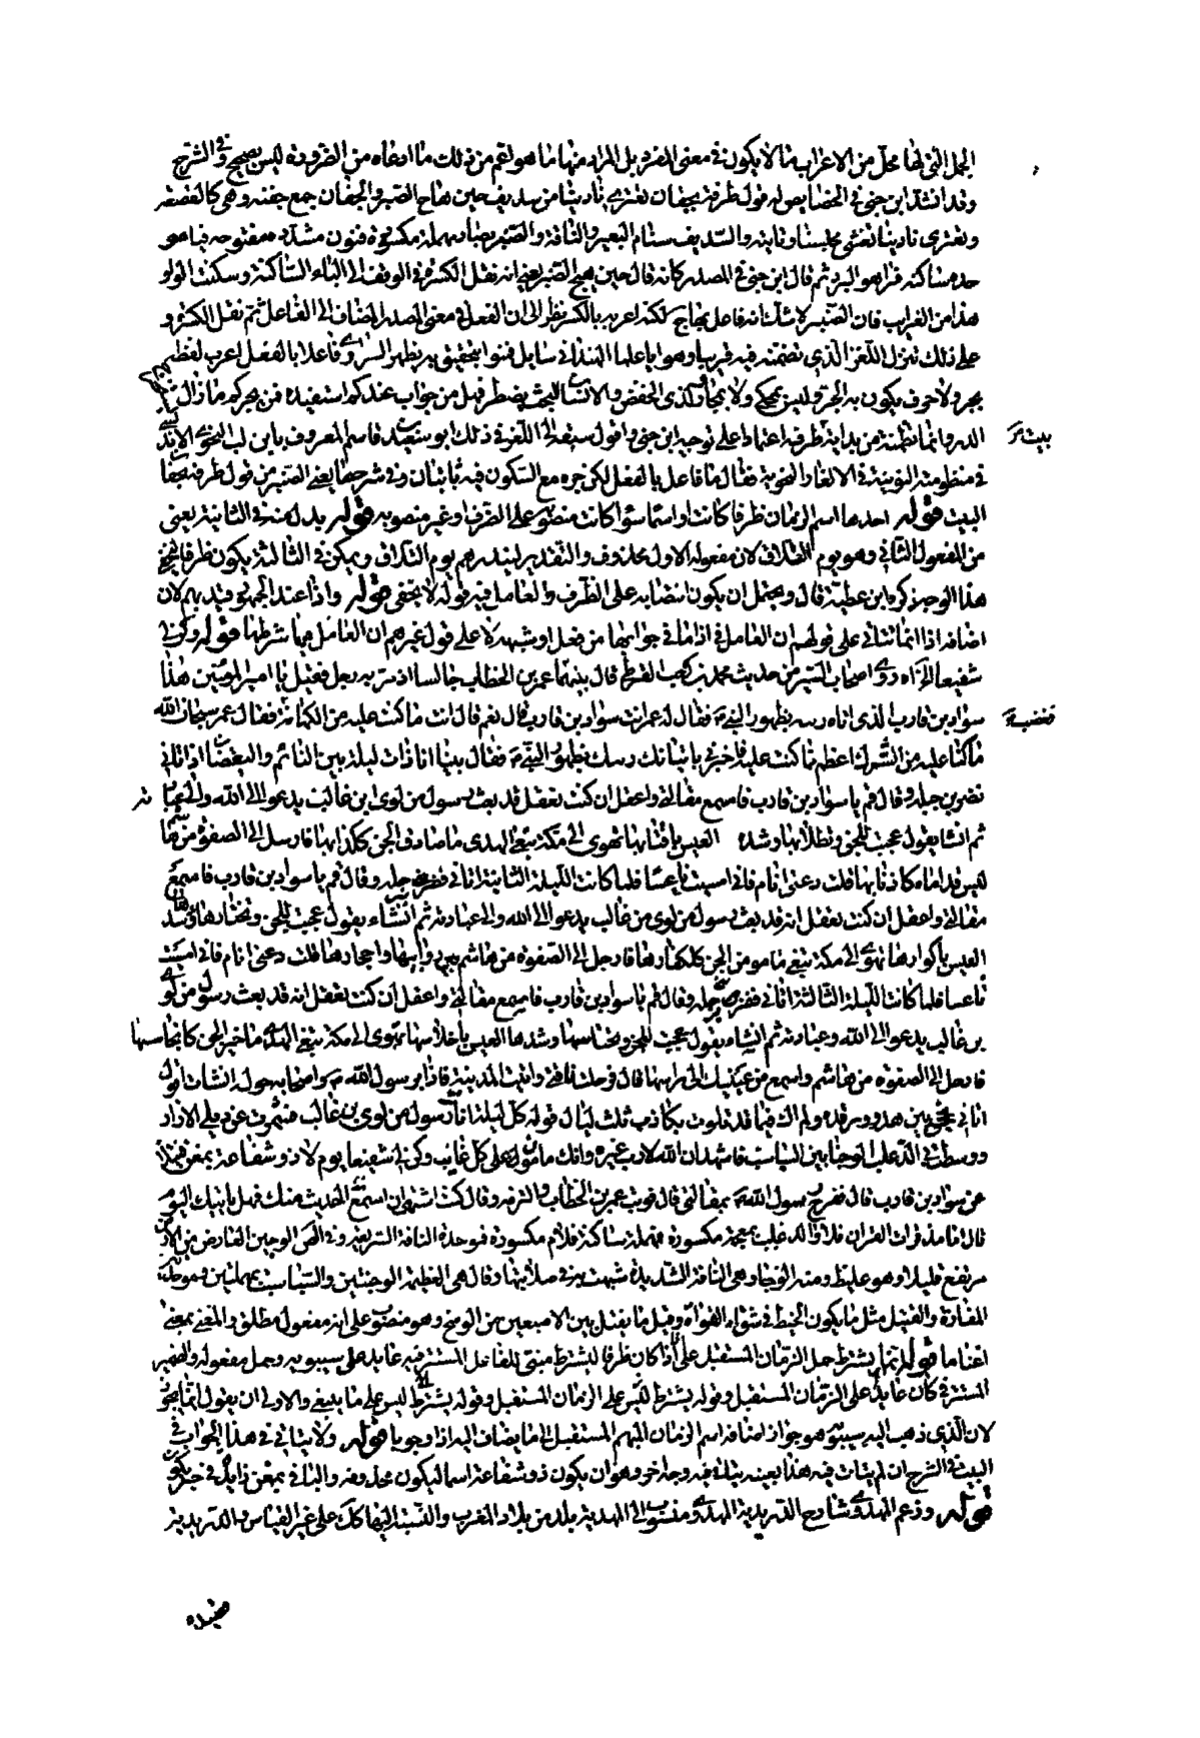 الجمل التي لها محل من الاعراب ما لا يكون في معنى المفرد بل المراد منها ما هو اعم من ذلك ما ادعاه من الضرورة ليس بصحيح وفي الشرح
وقد انشد ابن جني في الخصايص له قول طرفة بجفان تعتري نادينا من سديف حين هاج الصنبر والجفان جمع جفنة وهي كالقصعة
وتعتري نادينا تغشى مجلسنا وتاتيه والسديف سنام البعير والناقة والصنبر بصاد مهملة مكسورة فنون مشددة مفتوحة فباء مو
حدة ساكنة فراء هو البرد ثم قال ابن جني في المصدر كانه قال حين هيج الصنبر يعني انه نقل الكسرة في الوقف الى الباء الساكنة وسكنت الراء
هذا من الغراب فان الصنبر لا شك انه فاعل بهاج لكنه اعربه بالكسر نظر الى ان الفعل في معنى المصدر المضاف الى الفاعل ثم نقل الكسرة و
على ذلك تنزل اللغز الذي نضمته فيه قريبا وهو ايا علما الهند اني سايل فمنوا بتحقيق به يظهر السر ارى فاعلا بالفعل اعرب لفظه
بجر ولا حرف يكون به الجر وليس بمحكي ولا بمجاور لذي الخفض والانسان للبحث يضطر فهل من جواب عندكم استفيده فمن بحركم ما زال
الدر وانما نظمته من بداية طرفة اعتمادا على توجيه ابن جني واقول سبقه الى اللغز في ذلك ابو سعيد قاسم المعروف بابن لب النحوي الاندلسي
في منظومته النونية في الالغاز النحوية فقال ما فاعل بالفعل لكن جره مع السكون فيه ثابتان وفي شرحها يعني الصنبر من قول طرفة بجفا
البيت قوله احدها اسم الزمان ظرفا كانت او اسما سواء كانت منصوبة على الظرف او غير منصوبه قوله بدل منه في الثانية يعني
من المفعول الثاني وهو يوم التلاق لان مفعوله الاول محذوف والتقدير لينذرهم يوم التلاق ويمكن في الثالثة يكون ظرفا
هذا الوجه ذكره ابن عطية قال ويحتمل ان يكون انتصابه على الظرف والعامل فيه قوله لا يخفى قوله واذا عند الجمهور قيد بهم لان
اضافة اذا انما تتاتى على قولهم ان العامل في اذا ما في جوابها من فعل او شبهه لا على قول غيرهم ان العامل فيها شرطها قوله وكن لي
شفيعا الخ رواه اصحاب السير من حديث محمد بن كعب القرظي قال بينما عمر بن الخطاب جالسا اذ مر به رجل فقيل يا امير المومنين هذا
سواد بن قارب الذي اتاه رييه بظهور النبي فقال له عمر انت سواد بن قارب قال نعم قال انت ما كنت عليه من الكهانة فقال عمر سبحان الله
ما كنا عليه من الشرك اعظم مما كنت عليه فاخبرني باتيانك رييك بظهور النبي فقال بينا انا ذات ليلة بين النائم واليقضان اذ اتاني
فضربني برجله وقال قم يا سواد بن قارب فاسمع مقالتي واعقل ان كنت تعقل قد بعث رسول من لوي ابن غالب يدعو الى الله والى عبا
ثم انشا يقول عجبت للجن وتطلابها وشده العيس باقتابها تهوى الى مكة تبغي الهدى ما صادق الجن ككذابها فارحل الى الصفوة من هاشم
ليس قداماها كاذنابها قلت دعني انام فاني امسيت ناعسا فلما كانت الليلة الثانية اتاني فضربني برجله وقال قم يا سواد بن قارب فاسمع
مقالتي واعقل ان كنت تعقل انه قد بعث رسول من لوي من غالب يدعو الى الله والى عبادته ثم انشاء يقول عجبت للجن وتخبارها وشد
العيس باكوارها تهوي الى مكة تبغي ما مومن الجن ككفارها فارحل الى الصفوة من هاشم بين روابيها واحجارها قلت دعني انام فاني امسيت
ناعسا فلما كانت الليلة الثالثة اتاني فضربني برجله وقال قم يا سواد بن قارب فاسمع مقالتي واعقل ان كنت تعقل انه قد بعث رسول من لو
بن غالب يدعو الى الله وعبادته ثم انشاء يقول عجبت للجن وتحساسها وشدها العيس باحلاسها تهوى الى مكة تبغي الهدى ما خير الجن كانجاسها
فارحل الى الصفوة من هاشم واسم بعينيك الى راسها قال فرحلت ناقتي واتيت المدينة فاذا برسول الله واصحابه حوله انشات اقول
اتاني نجي بين هدء ورقدة ولم اك فيما قد تلوت بكاذب ثلث ليال قوله كل ليلة اتاك رسول من لوي بن غالب فشمرت عن ذيلي الازار
ووسطت بي الذعلب الوجنا بين السباسب فاشهد ان الله لا رب غيره وانك مامون على كل غايب وكن لي شفيعا يوم لا ذو شفاعة بمغن فتيلا
عن سواد بن قارب قال ففرح رسول الله بمقالتي قال فوثب عمر بن الخطاب والتزمه وقال كنت اشتهي ان اسمع الحديث منك فهل ياتيك اليوم
قال اما مذ قرات القران فلا والذعلب بمعجمة مكسورة فمهملة ساكنة فلام مكسورة فموحدة الناقة السريعة وفي الصحاح الوجين العارض من الارض
مرتفع قليلا وهو غليظ ومنه الوجناء وهي الناقة الشديدة شبهت به في صلابتها وقال هي العظيمة الوجنتين والسباسب بمهملتين وموحدتين
المفازة والفتيل مثل ما يكون الخيط في شق النواة وقيل ما يفتل بين الاصبعين من الوسخ وهو منصوب على انه مفعول مطلق والمغني بمعنى
اغناما قوله انما يشترط حمل الزمان المستقبل على اذا كان ظرفا ليشترط مبني للفاعل المستتر فيه عايد على سيبويه وحمل مفعوله والضمير
المستتر في كان عايد على الزمان المستقبل وقوله يشترط ليس على الزمان المستقبل وقوله يشترط ليس على ما ينبغي والاولى ان يقول انما يجوز
لان الذي ذهب اليه سيبويه هو جواز اضافة اسم الزمان المبهم المستقبل الى ما يضاف اليه اذا وجوبا قوله ولا يتاتى في هذا الجواب في
البيت في الشرح ان لم يتات فيه هذا بعينه يتات فيه وجه اخر وهو ان يكون ذو شفاعة اسما ليكون محذوفة والباء في بمغن زايدة في خبر يكون
قوله وزعم المهدوي شارح الدريدية المهدوي منسوب الى المهدية بلد من بلاد المغرب والنسبة اليها كك على غير القياس والدريدية
قصيدة